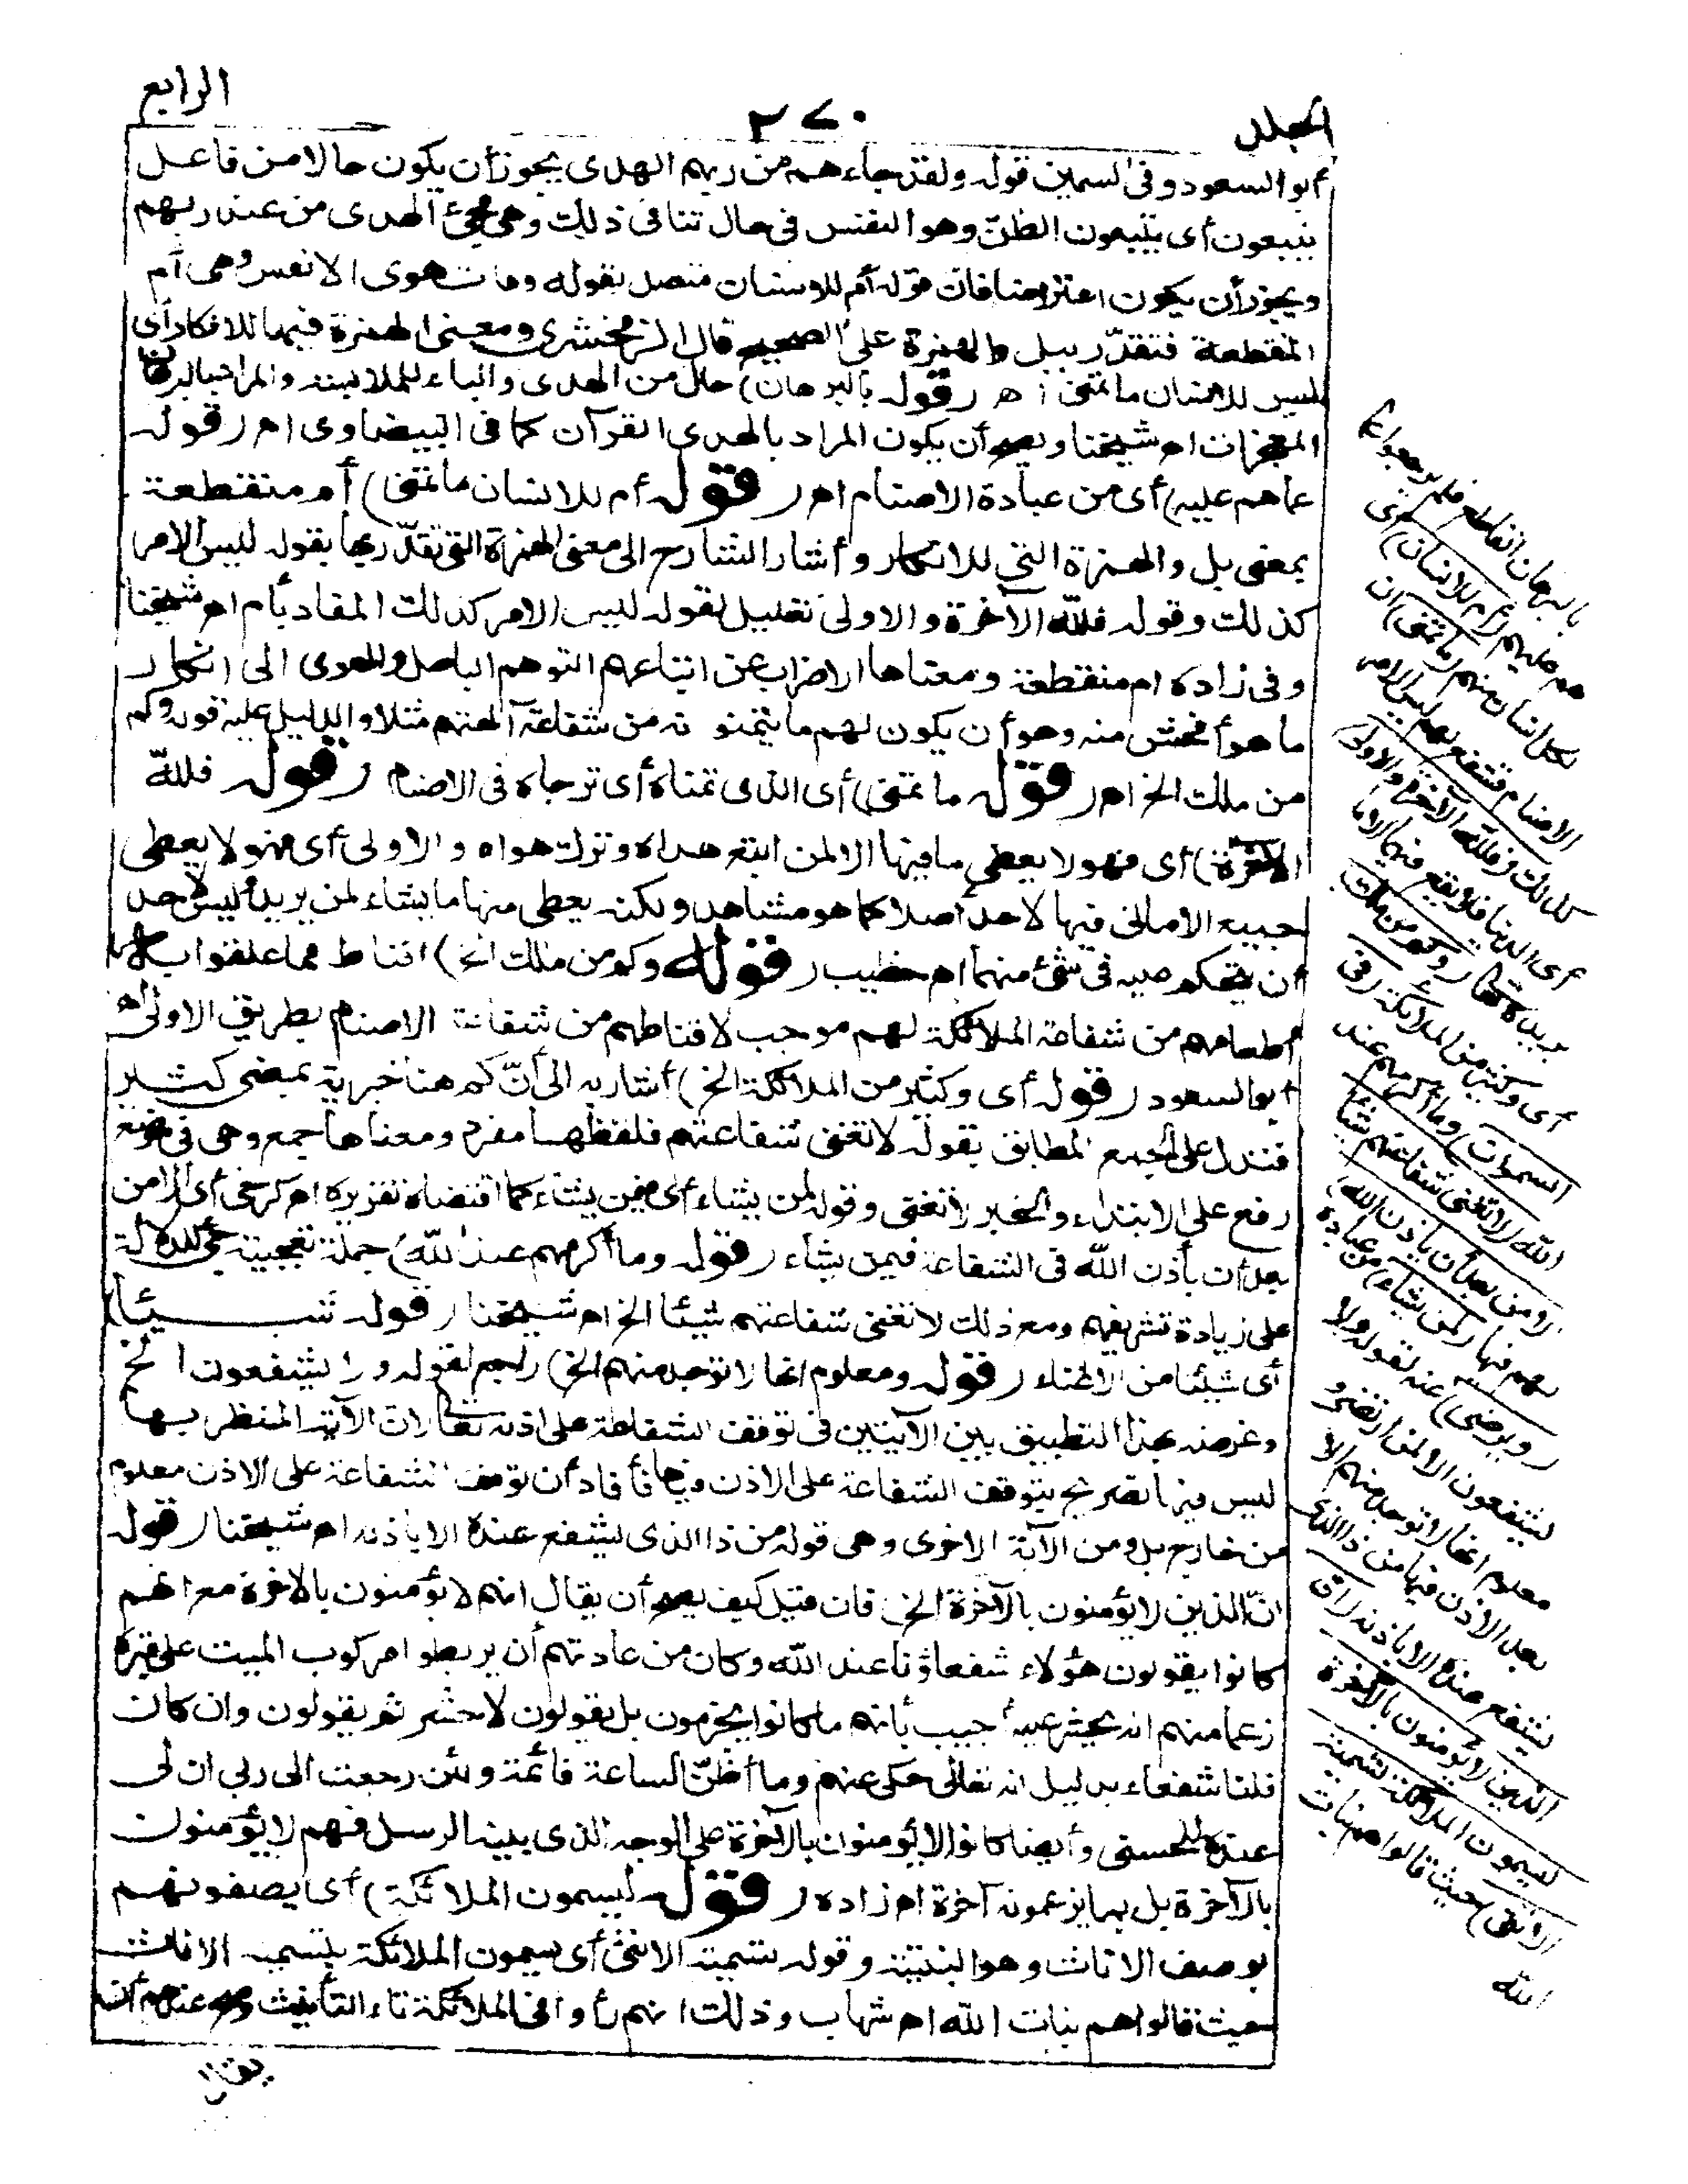 المجلد
٢٧٠
الرابع
أبو السعود وفى السمين قوله ولقد جاءهم من ربهم الهدى يجوز أن يكون حالا من فاعل
يتبعون أى يتبعون الظن وهوا النفس فى حال تنافى ذلك وهى مجئ الهدى من عند ربهم
ويجوز أن يكون اعتراضا فان قوله أم للانسان متصل بقوله وما تهوى الانفس وهى أم
المقطعة فتقدّر ببل والهمزة على الصحيح قال الزمخشرى ومعنى الهمزة فيها للانكار أى
ليس للانسان ما تمنى اه (قوله بالبرهان) حال من الهدى والباء للملابسة والمراد بالبرهان
المعجزات اه شيخنا ويصح أن يكون المراد بالهدى القرآن كما فى البيضاوى اه (قوله
عماهم عليه) أى من عبادة الاصنام اه (قوله أم للانسان ما تمنى) أم منقطعة
بمعنى بل والهمزة التى للانكار وأشار الشارح الى معنى الهمزة التى تقدّر بها بقوله ليس الامر
كذلك وقوله فلله الآخرة والاولى تعليل لقوله ليس الامر كذلك المفاد بأم اه شيخنا
وفى زاده ام منقطعة ومعناها الاضراب عن اتباعهم التوهم الباطل والهوى الى انكار
ما هو أفحش منه وهو أن يكون لهم ما يتمنونه من شفاعة آلهتهم مثلا والدليل عليه قوله وكم
من ملك الخ اه (قوله ما تمنى) أى الذى تمناه أى ترجاه فى الاصنام (قوله فلله
الآخرة) أى فهو لا يعطى ما فيها الا لمن اتبع هداه وترك هواه والاولى أى فهو لا يعطى
جميع الامانى فيها لاحد أصلا كما هو مشاهد ولكنه يعطى منها ما يشاء لمن يريد أليس لاحد
أن يتحكم عليه فى شئ منهما اه خطيب (قوله وكم من ملك الخ) اقناط مما علقوا به
أطماعهم من شفاعة الملائكة لهم موجب لاقناطهم من شفاعة الاصنام بطريق الاولى اه
أبو السعود (قوله أى وكثير من الملائكة الخ) أشار به الى أنّ كم هنا خبرية بمعنى كثير
فتدل على الجمع المطابق بقوله لا تغنى شفاعتهم فلفظها مفرد ومعناها جمع وهى فى موضع
رفع على الابتداء والخبر لا تغنى وقوله لمن يشاء أى فيمن يشاء كما اقتضاه تقريره اه كرخى أى الا من
بعد أن يأذن الله فى الشفاعة فيمن يشاء (قوله وما أكرمهم عند الله) جملة تعجبية جئ للدلالة
على زيادة تشريفهم ومع ذلك لا تغنى شفاعتهم شيئا الخ اه شيخنا (قوله شيئا)
أى شيئا من الاغناء (قوله ومعلوم انها لا توجد منهم الخ) راجع لقوله ولا يشفعون الخ
وغرضه بهذا التطبيق بين الآيتين فى توقف الشفاعة على اذنه تعالى لان الآية المنظر بها
ليس فيها تصريح بتوقف الشفاعة على الاذن فيها فأفاد أن توقف الشفاعة على الاذن معلوم
من خارج بل ومن الآية الاخرى وهى قوله من ذا الذى يشفع عنده الا باذنه اه شيخنا (قوله
انّ الذين لا يؤمنون بالآخرة الخ) فان قيل كيف يصح أن يقال انهم لا يؤمنون بالآخرة مع انهم
كانوا يقولون هؤلاء شفعاؤنا عند الله وكان من عادتهم أن يربطوا مركوب الميت على قبره
زعما منهم انه يحشر عليه أجيب بأنهم ما كانوا يجزمون بل يقولون لا حشر ثم يقولون وان كان
فلنا شفعاء بدليل انه تعالى حكى عنهم وما أظنّ الساعة قائمة ولئن رجعت الى ربى ان لى
عنده للحسنى وأيضا كانوا لا يؤمنون بالآخرة على الوجه الذى يبينه الرسل فهم لا يؤمنون
بالآخرة بل بما يزعمونه آخرة اه زاده (قوله ليسمون الملائكة) أى يصفونهم
بوصف الاناث وهو البنتية وقوله تسمية الانثى أى يسمون الملائكة بتسمية الاناث
حيث قالوا هم بنات الله اه شهاب وذلك انهم رأوا فى الملائكة تاء التأنيث وصح عندهم أنه
بالبرهان القاطع فلم يرجعوا عما
هم عليه (أم للانسان) أى
لكل انسان منهم (ما تمنى) ان
الاصنام تشفع لهم ليس الامر
كذلك (فلله الآخرة والاولى)
أى الدنيا فلا يقع فيهما الا ما
يريده تعالى (وكم من ملك)
أى وكثير من الملائكة (فى
السموات) وما أكرمهم عند
الله (لا تغنى شفاعتهم شيئا
الا من بعد أن يأذن الله)
لهم فيها (لمن يشاء) من عباده
(ويرضى) عنه لقوله ولا
يشفعون الا لمن ارتضى و
معلوم انها لا توجد منهم الا
بعد الاذن فيها من ذا الذى
يشفع عنده الا باذنه (ان
الذين لا يؤمنون بالآخرة
ليسمون الملائكة تسمية
الانثى) حيث قالوا هم بنات
الله
يقال